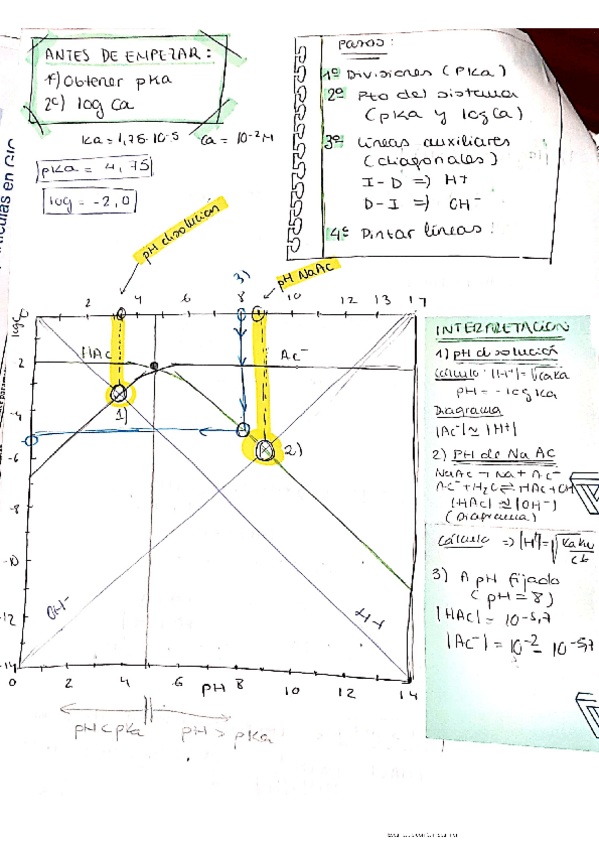 ANTES DE EMPEZAR:
1º) Obtener pKa
2º) log Ca
Ka = 1,78·10-5 Ca = 10-2 M
pKa = 4,75
log = -2,0
Pasos:
1º Divisiones (pKa)
2º Pto del sistema
(pKa y log Ca)
3º Líneas auxiliares
(diagonales)
I-D => H+
D-I => OH-
4º Pintar líneas!
pH disolución
3)
pH NaAc
2 4 6 8 10 12 13 17
logC
HAc
Ac-
2
1)
-4
2)
-6
-8
-10
OH-
H+
-12
-14
0 2 4 6 pH 8 10 12 14
pH<pKa pH > pKa
INTERPRETACIÓN
1) pH disolución
Cálculo |H+| = √CaKa
pH = -log Ka
Diagrama
|Ac-| ≃ |H+|
2) pH de NaAc
NaAc → Na+ Ac-
Ac- + H2O ⇌ HAc + OH
|HAc| ≃ |OH-|
(Diagrama)
Cálculo => |H+| = √KaKw/Cb
3) A pH fijado
(pH = 8)
|HAc| = 10-5,7
|Ac-| = 10-2 - 10-5,7